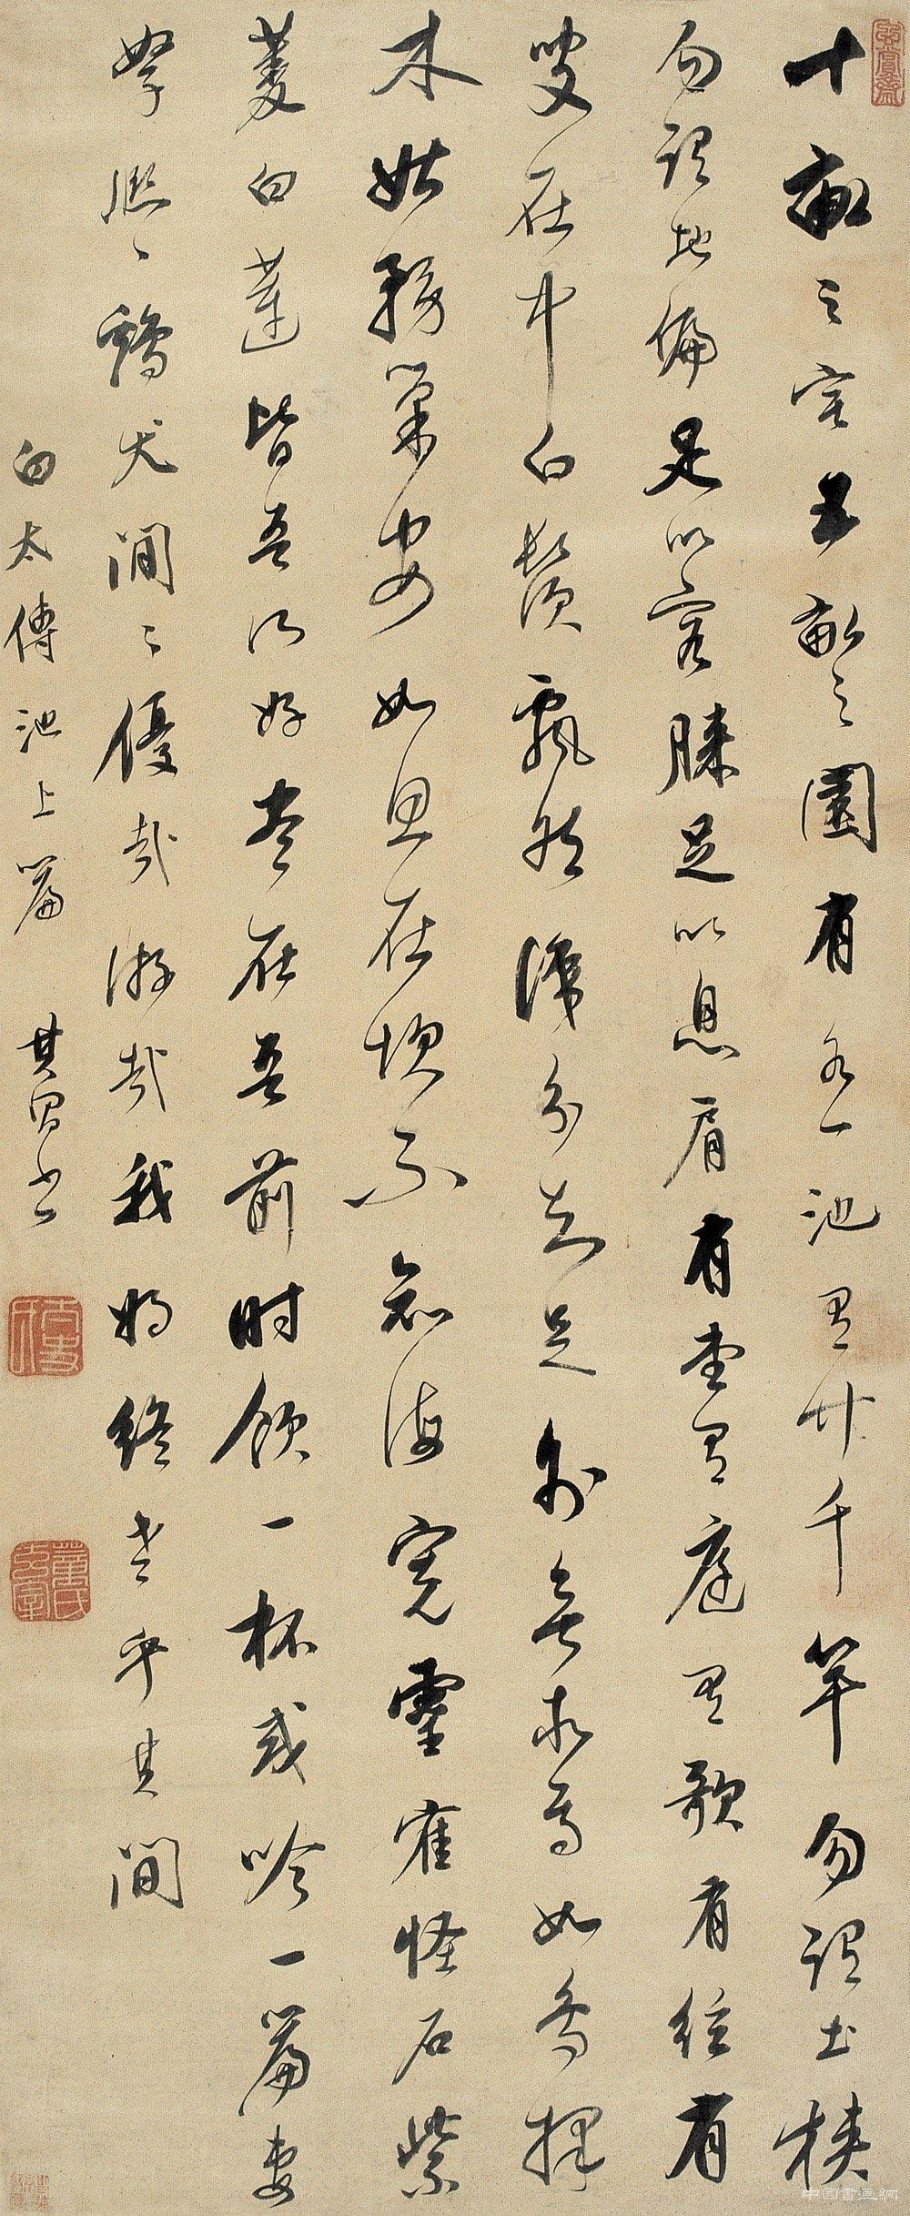 十畝之宅五畝之園有水一池有竹千竿勿謂土狹
勿謂地偏足以容膝足以息肩有堂有庭有歌有絃有
叟在中白鬚飄然識分知足外無求焉如鳥擇
木姑務巢安如龜居坎不知海寬靈寉怪石紫
菱白蓮皆吾所好盡在吾前時飲一杯或吟一篇妻
孥熙々雞犬閒々優哉游哉我將終老乎其間
白太傅池上篇 其昌書
玄賞齋
太史氏
董氏玄宰
中國書畫網